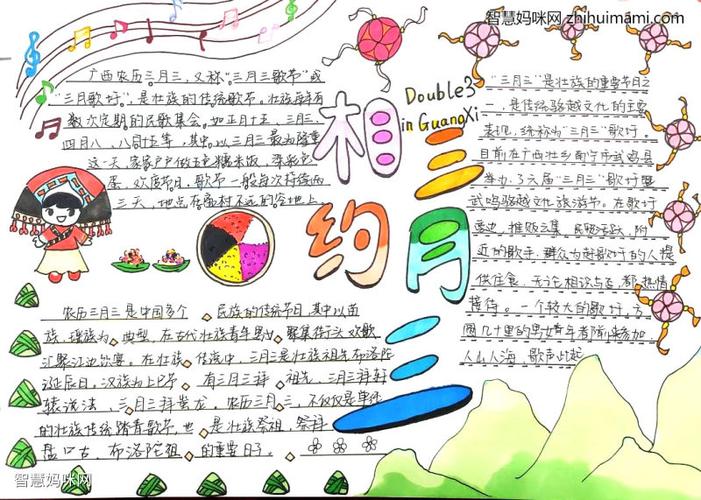 智慧妈咪网 zhihuimami.com
相约
三月三
Double3
in GuangXi
广西农历三月三,又称"三月三歌节"或
"三月歌圩",是壮族的传统歌节。壮族每年有
数次定期的民歌集会,如正月十五、三月三、
四月八、八月十五等,其中以三月三最为隆重
这一天,家家户户做五色糯米饭,染彩色
蛋,欢度节日,歌节一般每次持续两
三天,地点在离村不远的空地上
"三月三"是壮族的重要节日之
一,是传统骆越文化的主要
表现,统称为"三月三"歌圩,
目前在广西壮乡南宁市武鸣县
举办了六届"三月三"歌圩暨
武鸣骆越文化旅游节。在歌圩
旁边,摊贩云集,民贸活跃,附
近的歌手、群众为赶歌圩的人提
供住食,无论相识与否,都热情
接待。一个较大的歌圩,方
圆几十里的男女青年都前来参加
人山人海,歌声此起
农历三月三是中国多个 民族的传统节日,其中以苗
族、瑶族为 典型,在古代壮族青年男女 聚集街头欢歌
汇聚江边饮宴。在壮族 传说中,三月三是壮族祖先布洛陀
诞辰日,汉族为上巳节 有三月三拜 祖先,三月三拜轩
辕说法、三月三拜蚩尤。农历三月三,不仅仅是单纯
的壮族传统踏青歌节,也 是壮族祭祖,祭拜
盘古、布洛陀祖 的重要日子。
智慧妈咪网